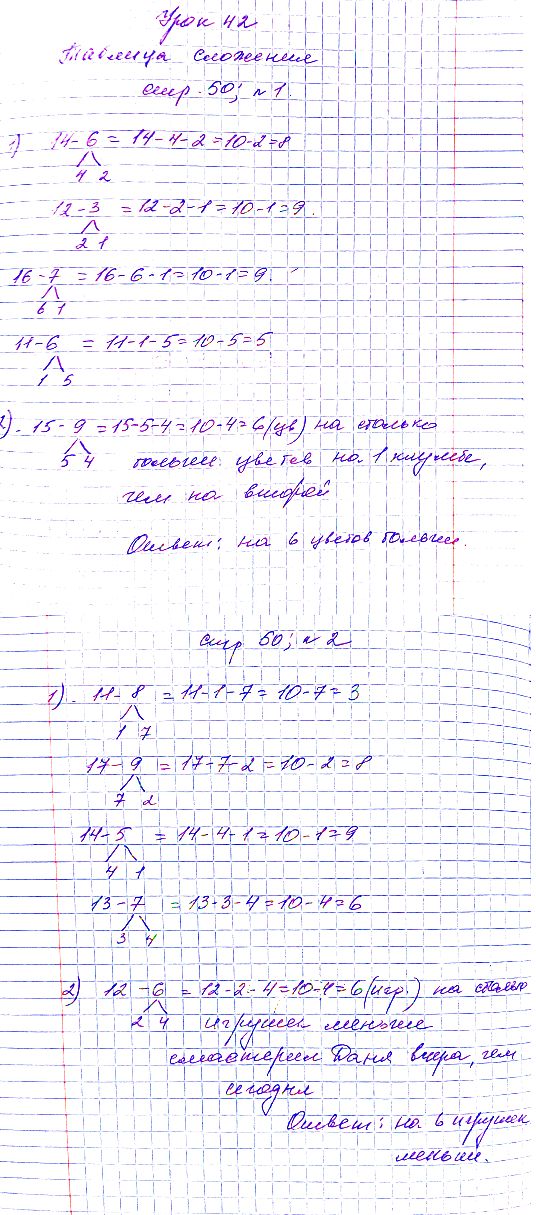 Урок 42
Таблица сложения
стр. 50; №1
1) 14-6 = 14-4-2=10-2=8
4 2
12-3 = 12-2-1=10-1=9.
2 1
16-7 = 16-6-1=10-1=9.
6 1
11-6 = 11-1-5=10-5=5
1 5
2). 15-9=15-5-4=10-4=6(цв) на столько
5 4 больше цветов на 1 клумбе,
чем на второй
Ответ: на 6 цветов больше.
стр 50; №2
1). 11-8 = 11-1-7=10-7=3
1 7
17-9 = 17-7-2=10-2=8
7 2
14-5 = 14-4-1=10-1=9
4 1
13-7 = 13-3-4=10-4=6
3 4
2) 12-6 = 12-2-4=10-4=6(игр.) на столько
2 4 игрушек меньше
смастерил Даня вчера, чем
сегодня
Ответ: на 6 игрушек
меньше.